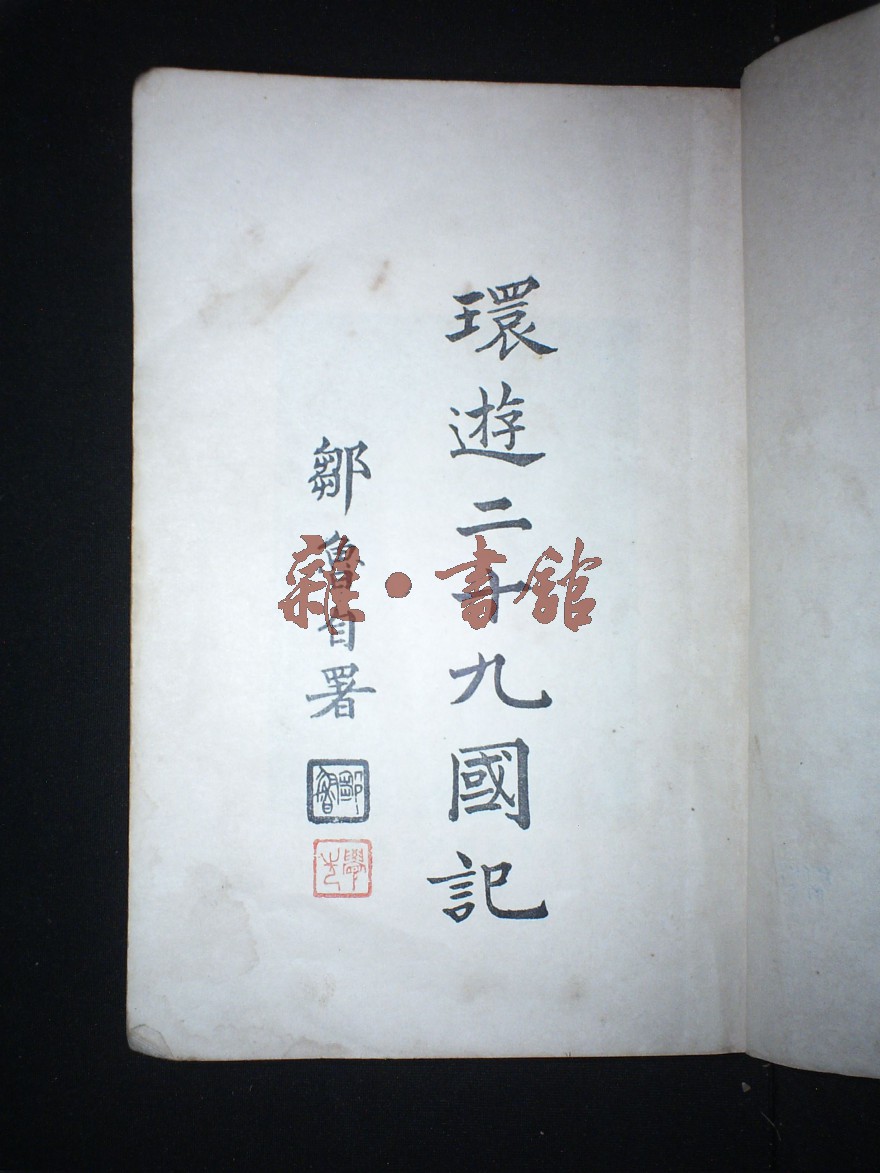 環遊二十九國記
鄒魯自署
鄒魯
學之
雜·書館